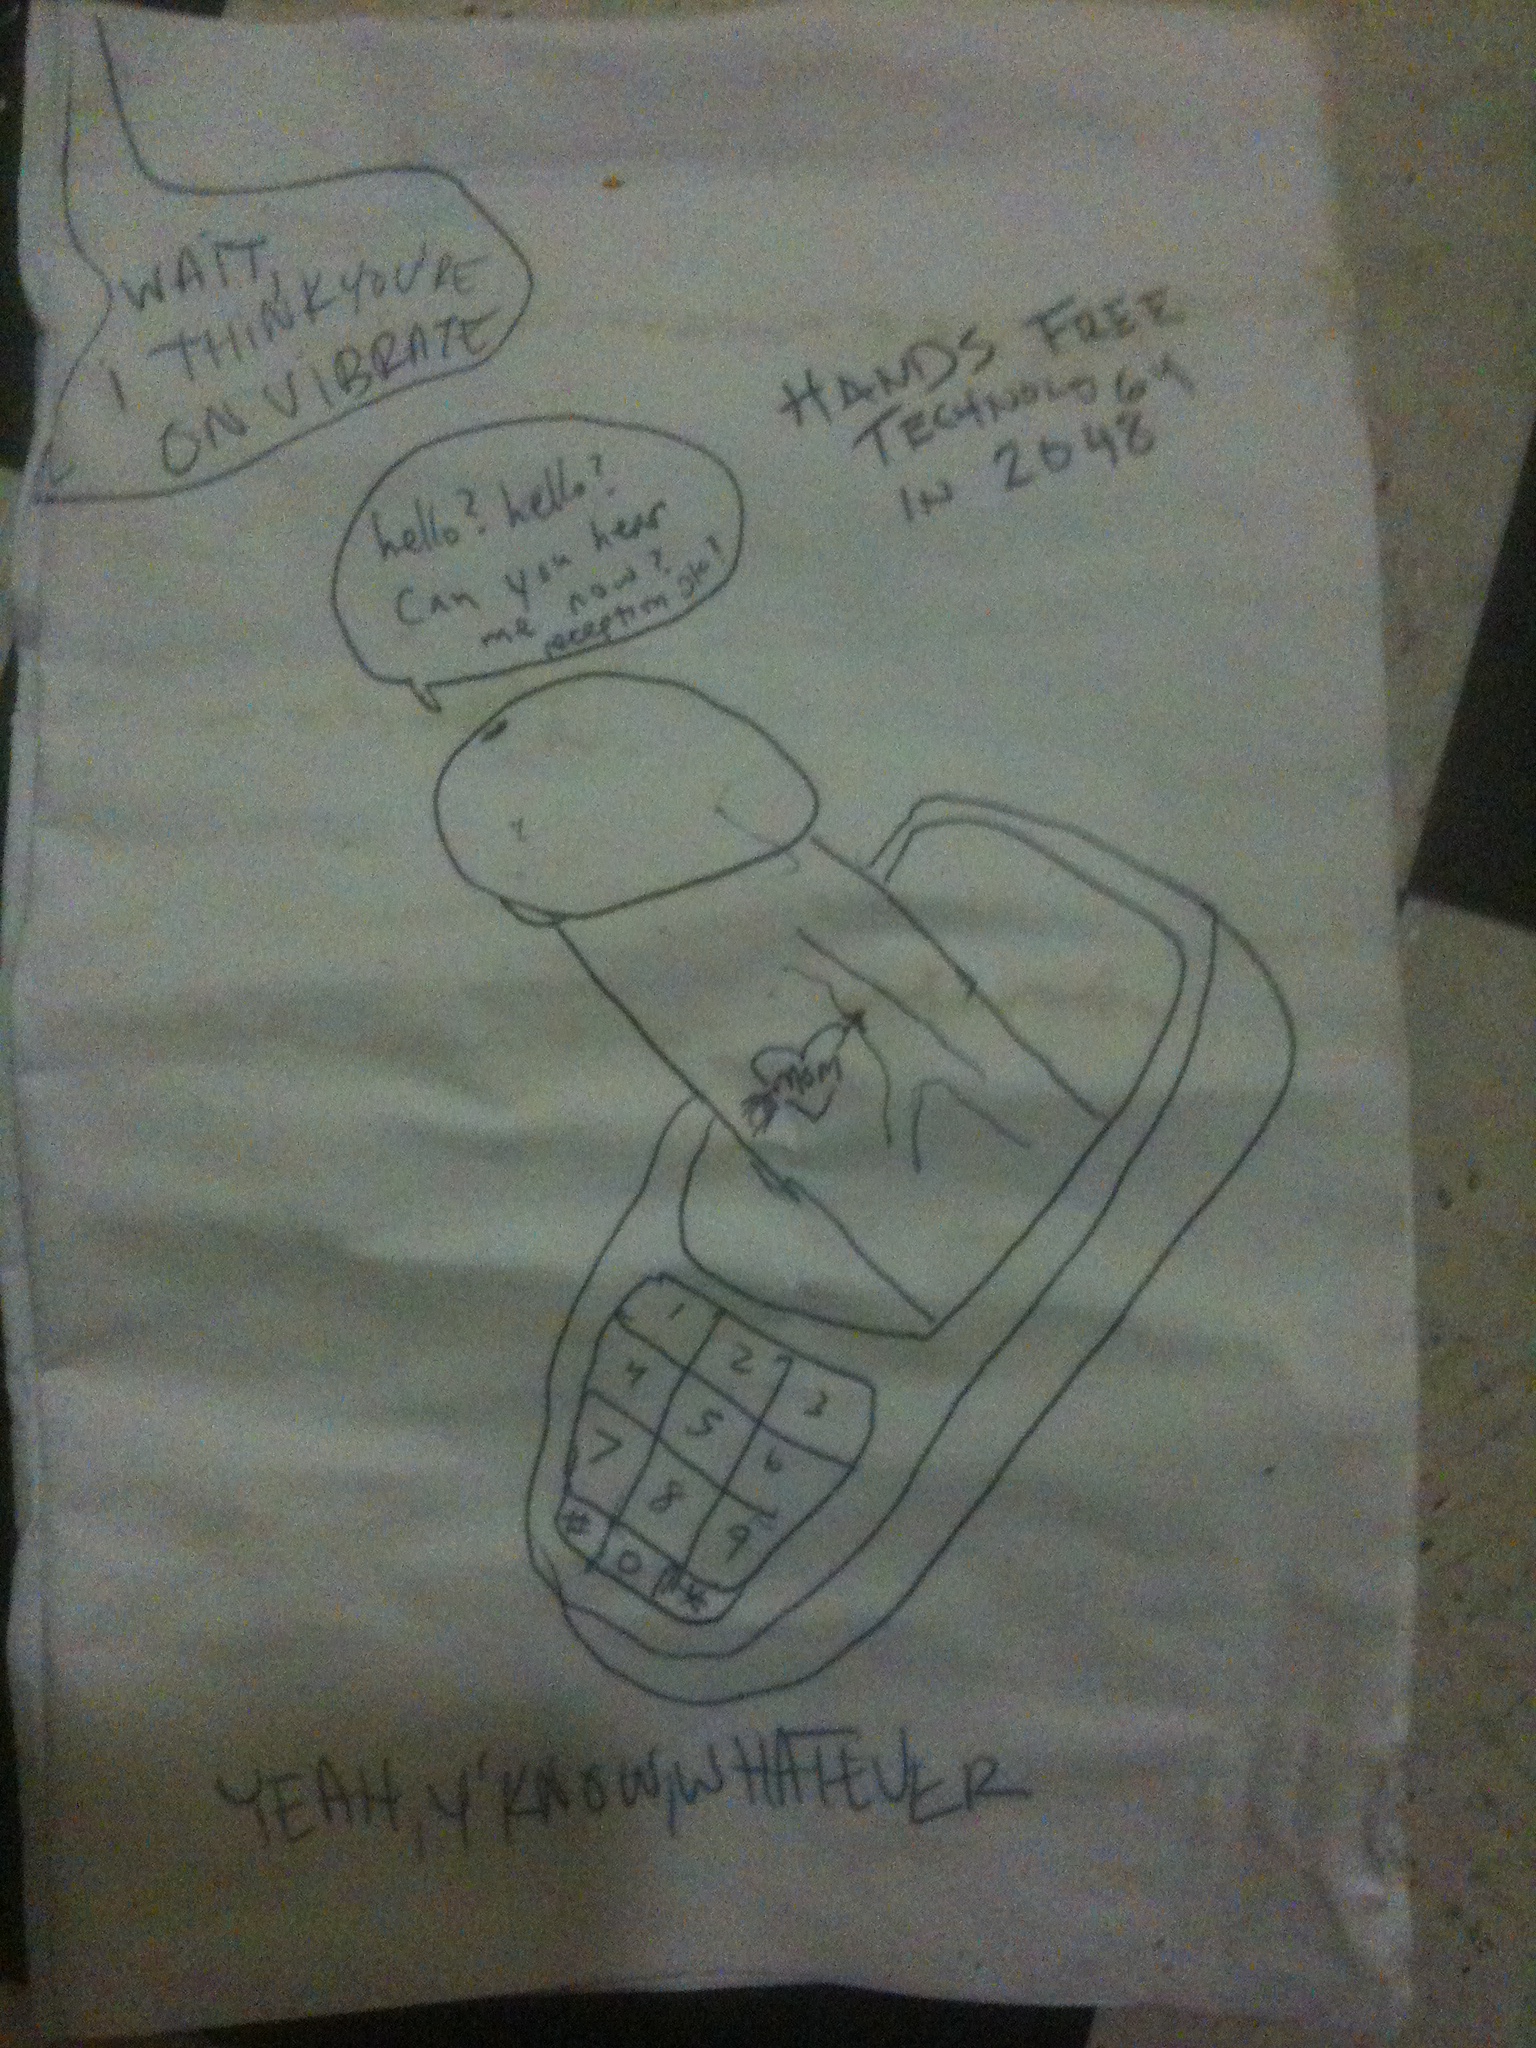 WAIT,
I THINK YOU'RE
ON VIBRATE
HANDS FREE
TECHNOLOGY
IN 2048
hello? hello?
Can you hear
me now?
reception ok?
mom
1 2 3
4 5 6
7 8 9
# 0 *
YEAH, Y'KNOW, WHATEVER